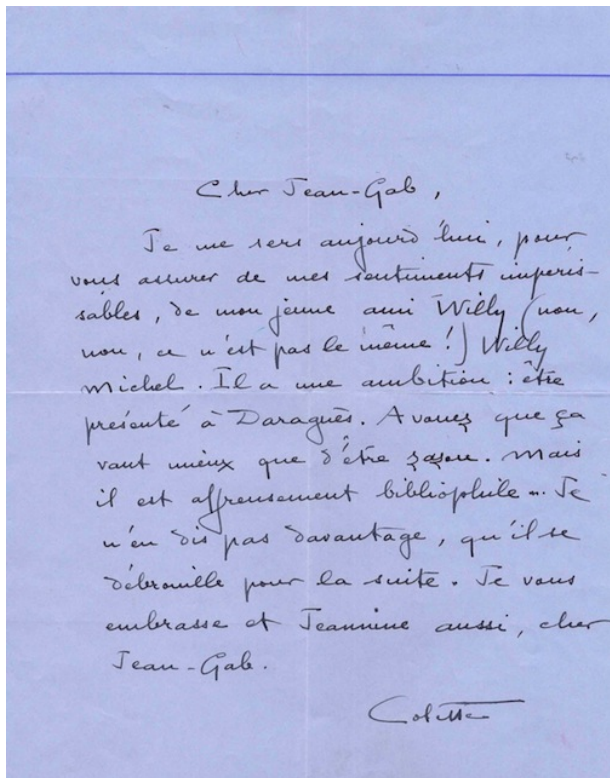 Cher Jean-Gab,
Je me sers aujourd'hui, pour
vous assurer de mes sentiments impéris-
sables, de mon jeune ami Willy (non,
non, ce n'est pas le même !) Willy
Michel. Il a une ambition : être
présenté à Daragnès. Avouez que ça
vaut mieux que d'être zazou. Mais
il est affreusement bibliophile... Je
n'en dis pas davantage, qu'il se
débrouille pour la suite. Je vous
embrasse et Jeannine aussi, cher
Jean-Gab.
Colette